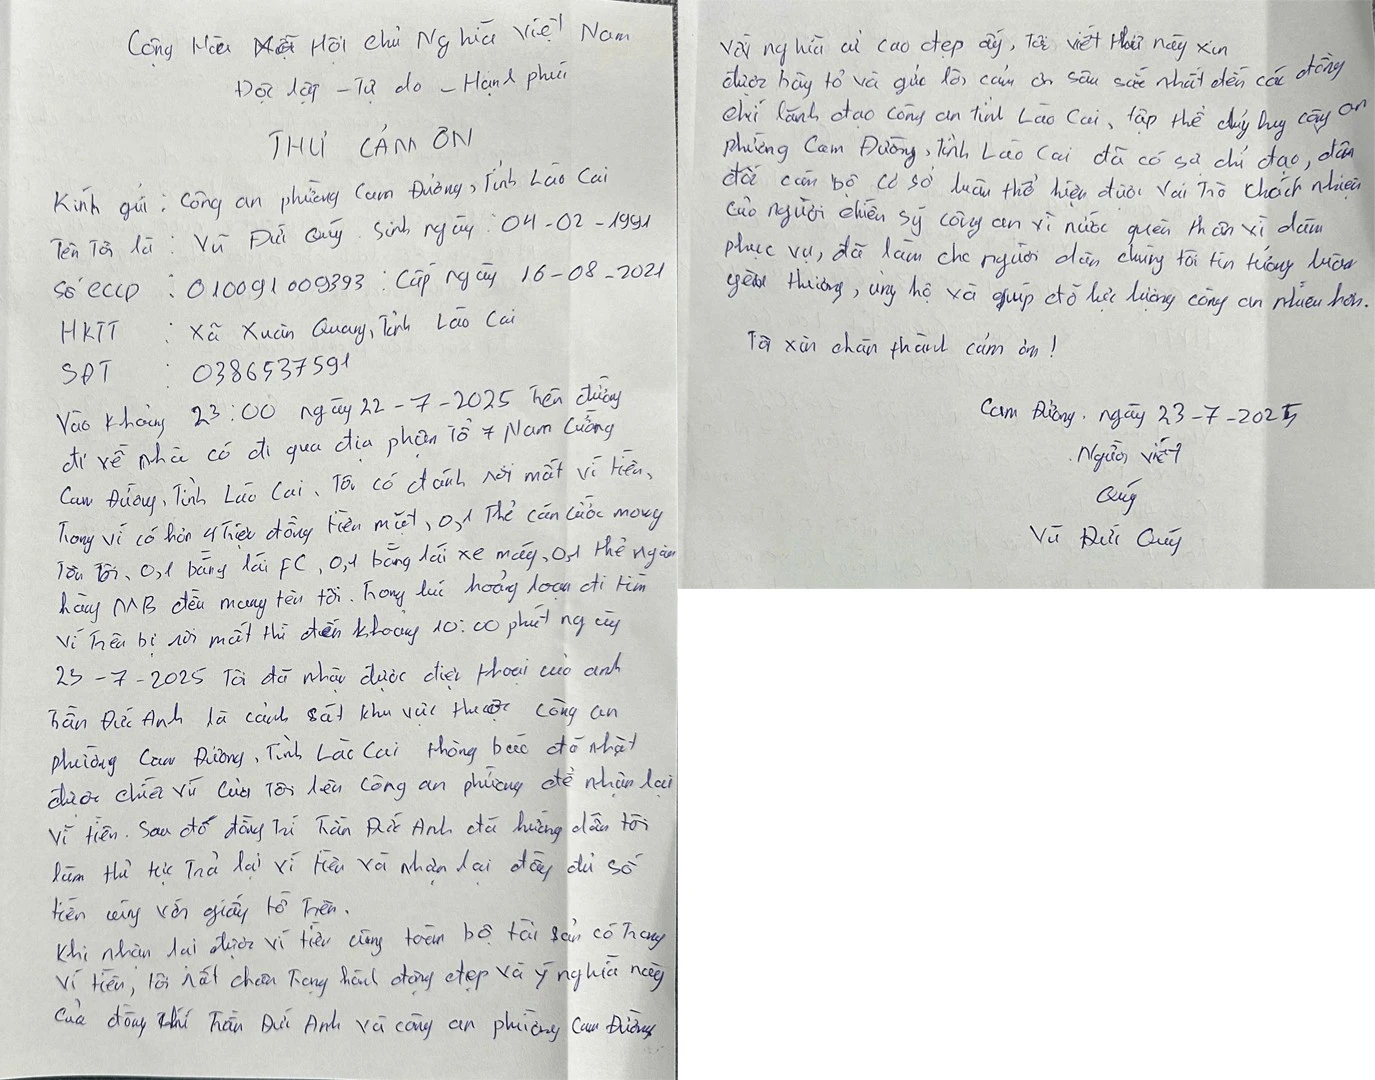 Cộng Hòa Xã Hội chủ Nghĩa Việt Nam
Độc lập - Tự do - Hạnh phúc
THƯ CẢM ƠN
Kính gửi : Công an phường Cam Đường, Tỉnh Lào Cai
Tên Tôi là : Vũ Đức Quý. Sinh ngày : 04-02-1991
Số cccp : 010091009393 : Cấp ngày 16-08-2021
HKTT : Xã Xuân Quang, Tỉnh Lào Cai
SĐT : 0386537591
Vào khoảng 23:00 ngày 22-7-2025 Trên đường
đi về nhà có đi qua địa phận Tổ 7 Nam Cường
Cam Đường, Tỉnh Lào Cai, Tôi có đánh rơi mất ví tiền,
Trong ví có hơn 4 triệu đồng tiền mặt, 0,1 Thẻ căn cước mang
Tên Tôi, 0,1 bằng lái FC, 0,1 bằng lái xe máy, 0,1 thẻ ngân
hàng MB đều mang tên tôi. Trong lúc hoảng loạn đi tìm
ví Trên bị rơi mất thì đến khoảng 10:00 phút ngày
23-7-2025 Tôi đã nhận được điện thoại của anh
Trần Đức Anh là cảnh sát khu vực thuộc công an
phường Cam Đường, Tỉnh Lào Cai thông báo đã nhặt
được chiếc ví của Tôi lên Công an phường để nhận lại
ví tiền. Sau đó đồng trí Trần Đức Anh đã hướng dẫn tôi
làm thủ tục Trả lại ví tiền và nhận lại đầy đủ số
tiền cùng với giấy tờ Trên.
Khi nhận lại được ví tiền cùng toàn bộ tài sản có Trong
ví tiền, tôi rất chân Trọng hành động đẹp và ý nghĩa này
của đồng chí Trần Đức Anh và công an phường Cam Đường
Với nghĩa cử cao đẹp ấy, Tôi viết thư này xin
được bày tỏ và gửi lời cảm ơn sâu sắc nhất đến các đồng
chí lãnh đạo công an tỉnh Lào Cai, tập thể chỉ huy công an
phường Cam Đường, Tỉnh Lào Cai đã có sự chỉ đạo, dẫn
dắt cán bộ cơ sở luôn thể hiện được Vai Trò trách nhiệm
của người chiến sỹ công an vì nước quên thân vì dân
phục vụ, đã làm cho người dân chúng tôi tin tưởng luôn
yêu thương, ủng hộ và giúp đỡ lực lượng công an nhiều hơn.
Tôi xin chân thành cảm ơn !
Cam Đường. ngày 23-7-2025
Người viết
Quý
Vũ Đức Quý